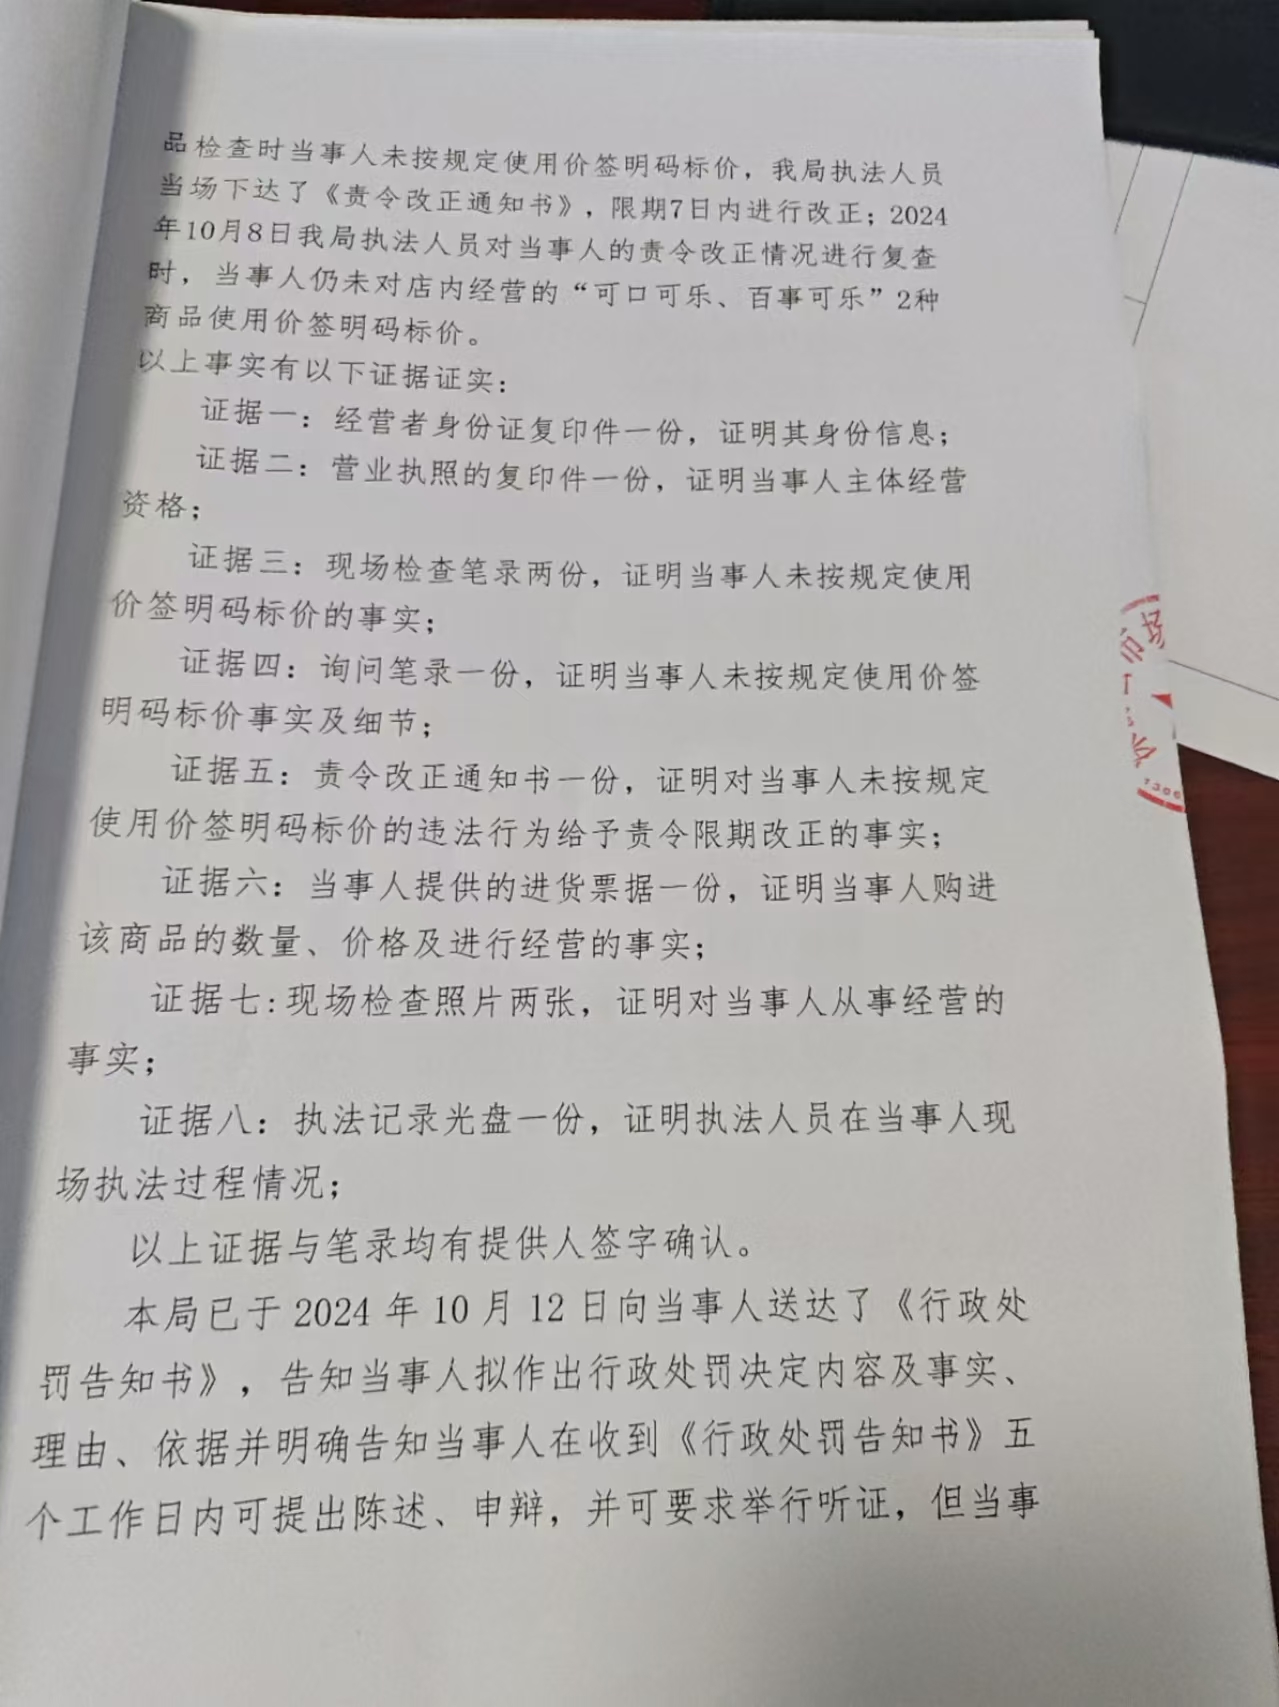 品检查时当事人未按规定使用价签明码标价，我局执法人员
当场下达了《责令改正通知书》，限期7日内进行改正；2024
年10月8日我局执法人员对当事人的责令改正情况进行复查
时，当事人仍未对店内经营的“可口可乐、百事可乐”2种
商品使用价签明码标价。
以上事实有以下证据证实：
证据一：经营者身份证复印件一份，证明其身份信息；
证据二：营业执照的复印件一份，证明当事人主体经营
资格；
证据三：现场检查笔录两份，证明当事人未按规定使用
价签明码标价的事实；
证据四：询问笔录一份，证明当事人未按规定使用价签
明码标价事实及细节；
证据五：责令改正通知书一份，证明对当事人未按规定
使用价签明码标价的违法行为给予责令限期改正的事实；
证据六：当事人提供的进货票据一份，证明当事人购进
该商品的数量、价格及进行经营的事实；
证据七：现场检查照片两张，证明对当事人从事经营的
事实；
证据八：执法记录光盘一份，证明执法人员在当事人现
场执法过程情况；
以上证据与笔录均有提供人签字确认。
本局已于 2024 年 10 月 12 日向当事人送达了《行政处
罚告知书》，告知当事人拟作出行政处罚决定内容及事实、
理由、依据并明确告知当事人在收到《行政处罚告知书》五
个工作日内可提出陈述、申辩，并可要求举行听证，但当事
市场